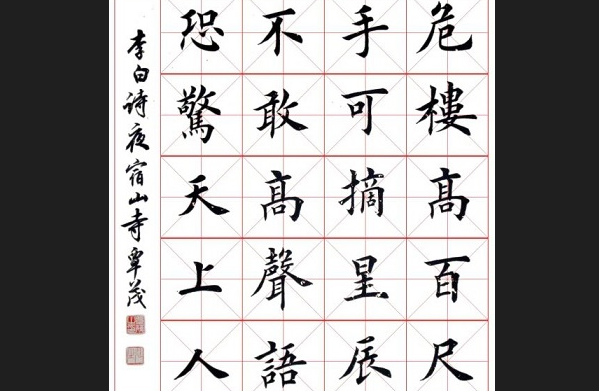 危樓髙百尺
手可摘星辰
不敢髙聲語
恐驚天上人
李白诗夜宿山寺覃茂